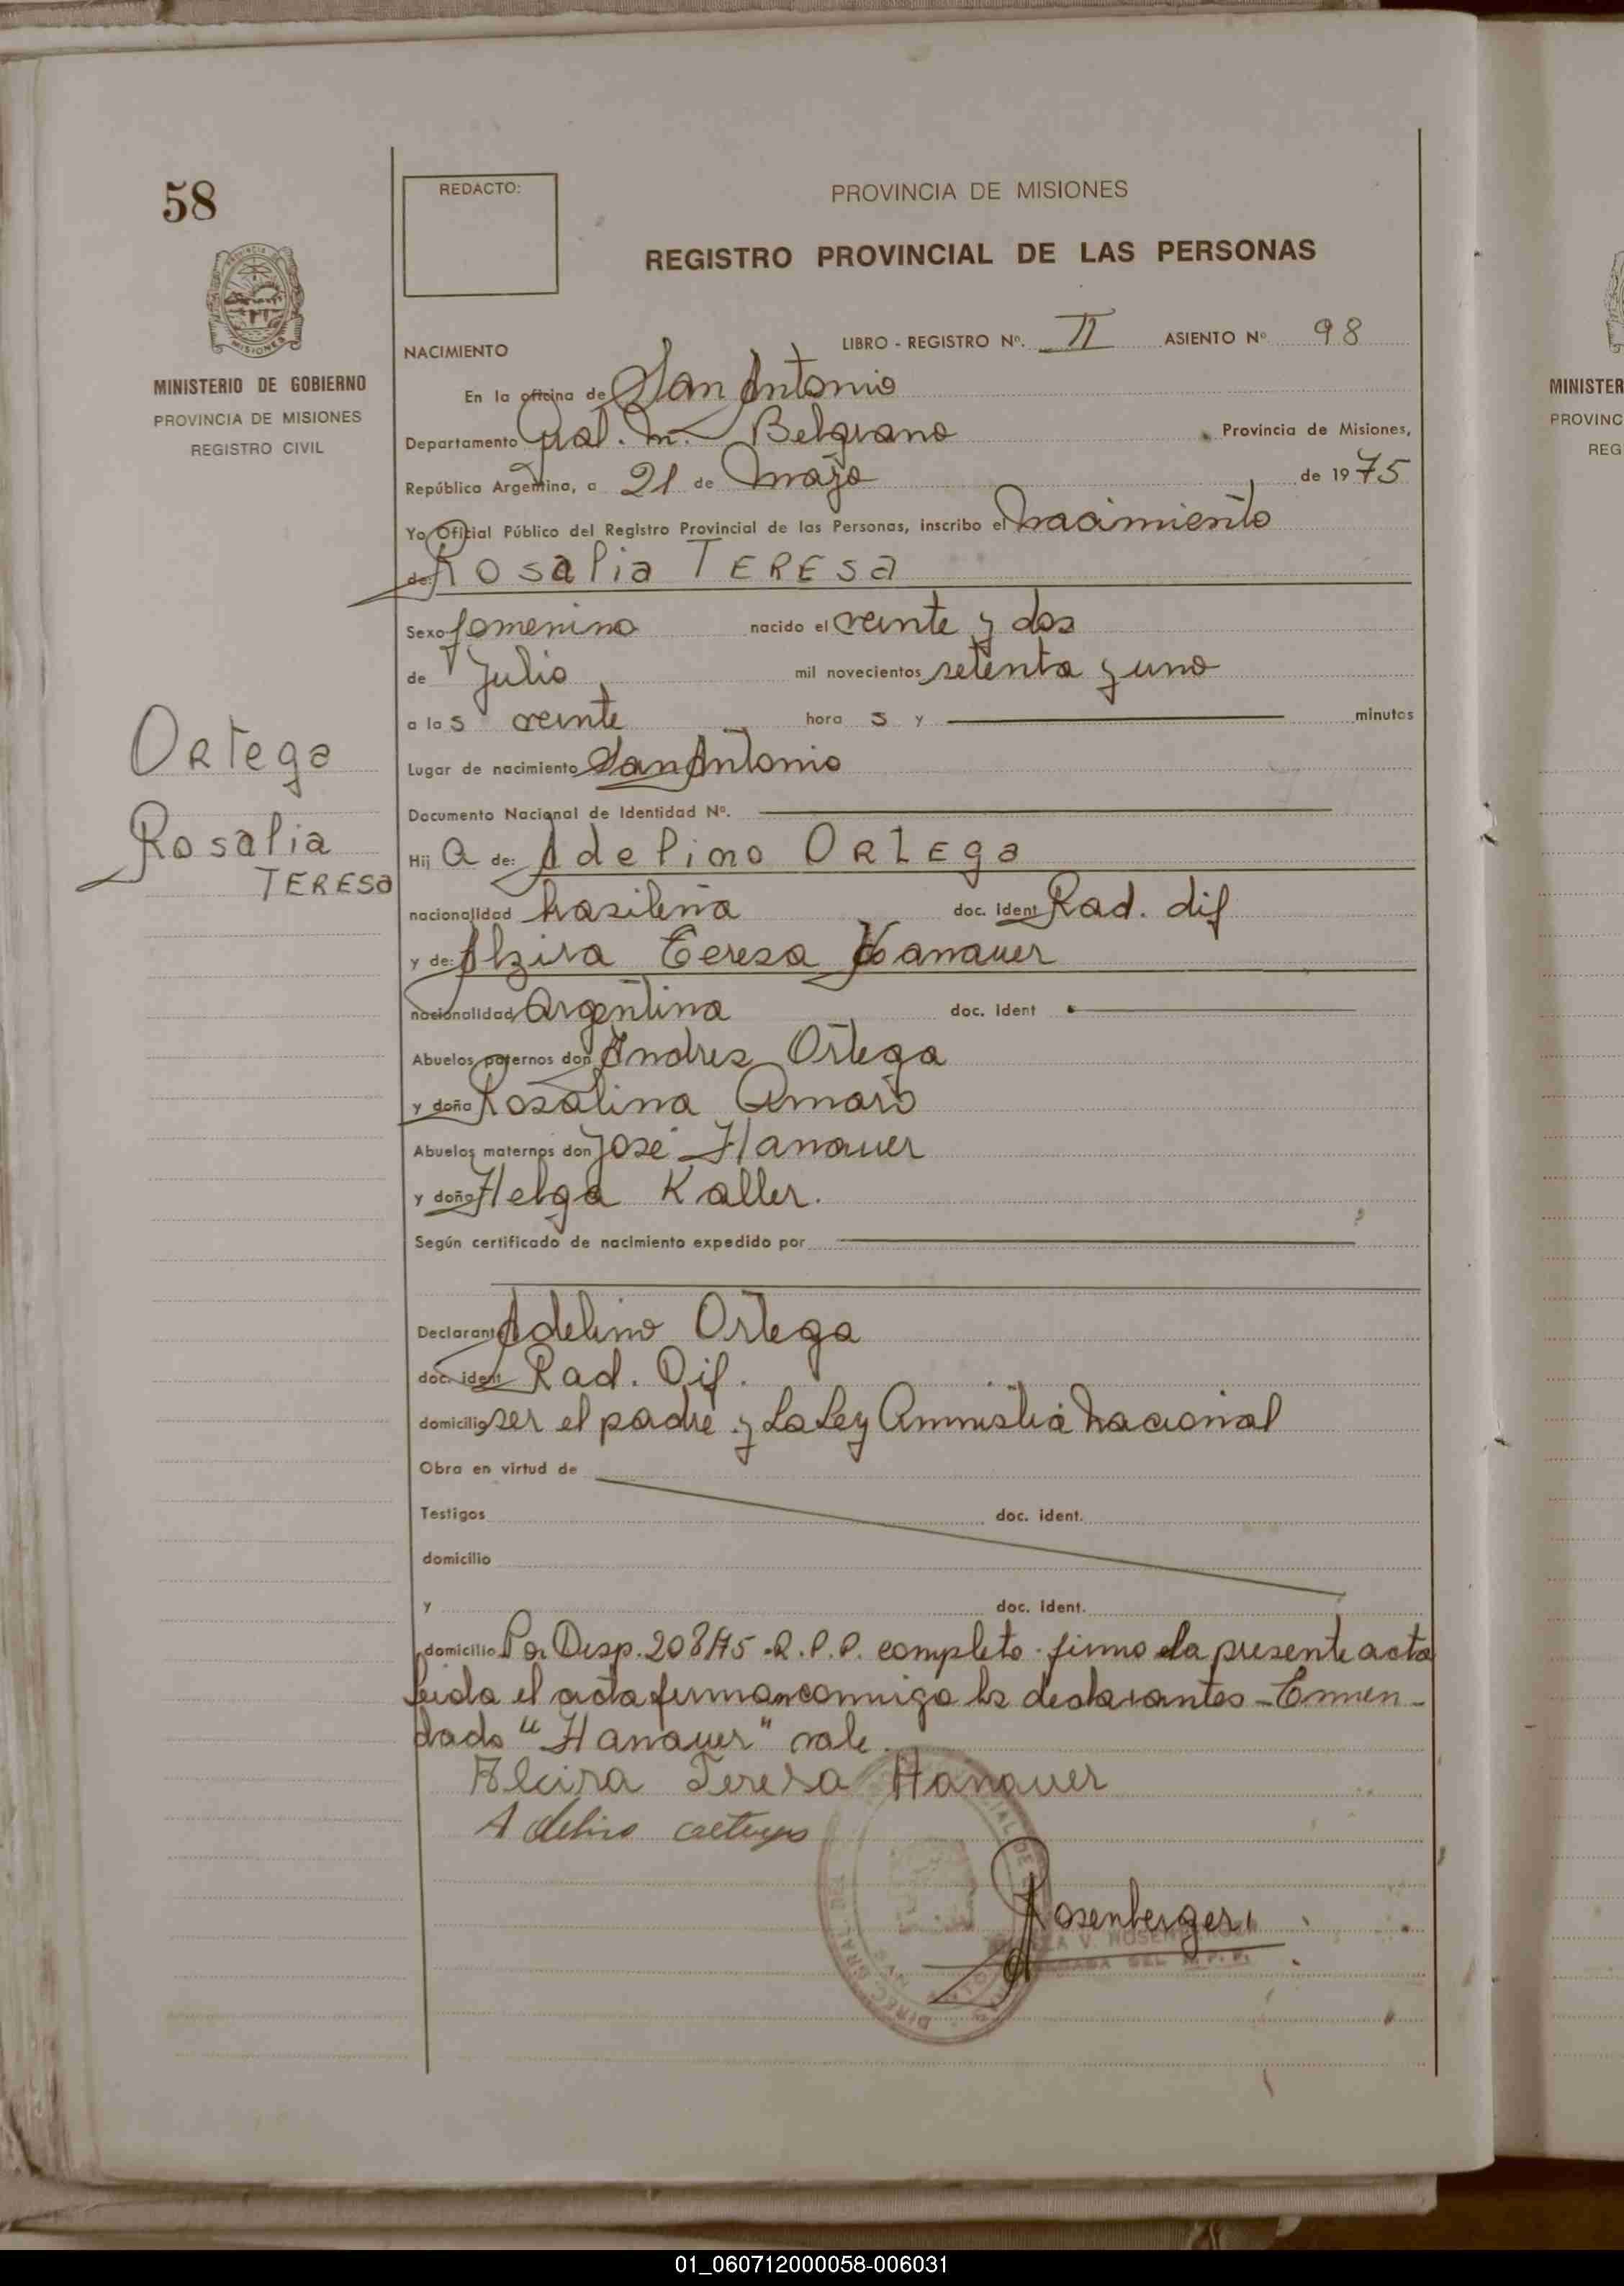 58
REDACTO:
PROVINCIA DE MISIONES
REGISTRO PROVINCIAL DE LAS PERSONAS
MISIONES
MINISTERIO DE GOBIERNO
PROVINCIA DE MISIONES
REGISTRO CIVIL
NACIMIENTO
LIBRO - REGISTRO Nº. II ASIENTO Nº 98
En la oficina de San Antonio
Departamento Gral. M. Belgrano Provincia de Misiones,
República Argentina, a 21 de mayo de 1975
Yo Oficial Público del Registro Provincial de las Personas, inscribo el nacimiento
de: Rosalia TERESa
Sexo femenino nacido el veinte y dos
de Julio mil novecientos setenta y uno
a las veinte hora s y minutos
Lugar de nacimiento San Antonio
Documento Nacional de Identidad Nº.
Ortega
Rosalia
TERESa
Hij a de: Adelino ORTEga
nacionalidad brasileña doc. ident Rad. dif
y de: Alzira Teresa Hanauer
nacionalidad argentina doc. ident
Abuelos paternos don Andres Ortega
y doña Rosalina Amaro
Abuelos maternos don José Hanauer
y doña Helga Kaller.
Según certificado de nacimiento expedido por
Declarante Adelino Ortega
doc. ident Rad. Dif.
domicilio ser el padre y La Ley Amnistia Nacional
Obra en virtud de
Testigos doc. ident.
domicilio
y doc. ident.
domicilio Por Disp. 208/75 - R.P.P. completo firmo la presente acta
leida el acta firman conmigo los declarantes - Enmen-
dado "Hanauer" vale.
Alcira Teresa Hanauer
Adelino
Rosenberger
V. ROSENBERGER
DEL R.P.P.
MINISTER
PROVINC
REG
01_060712000058-006031